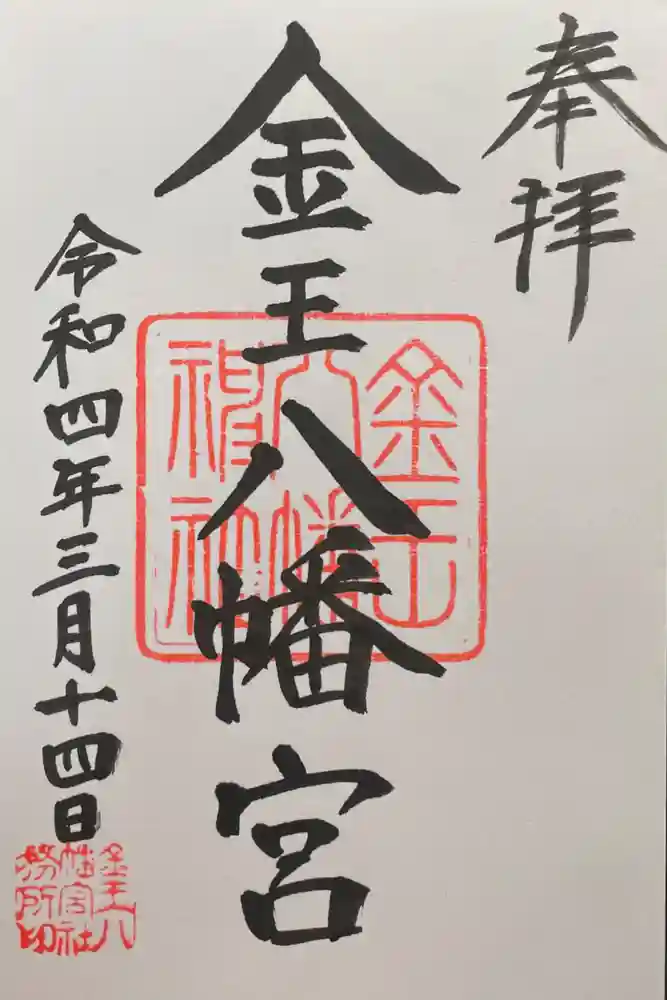 奉拝
金王八幡宮
令和四年三月十四日
金王
八幡
神社
金王八
幡宮社
務所印